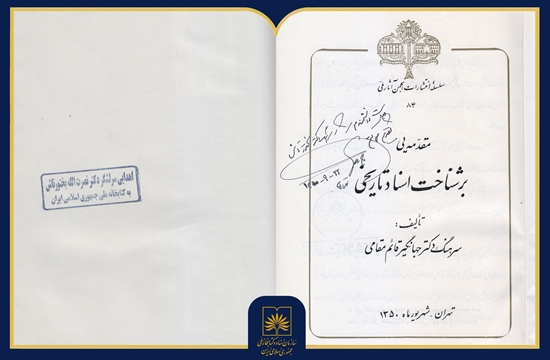 سلسله انتشارات انجمن آثار ملی
۸۴
مقدمه‌یی
بر شناخت اسناد تاریخی
تألیف:
سرهنگ دکتر جهانگیر قائم مقامی
تهران - شهریور ماه ۱۳۵۰
اهدایی سرلشکر دکتر نصرت الله بختورتاش
به کتابخانه ملی جمهوری اسلامی ایران
سازمان اسناد و کتابخانه ملی
جمهوری اسلامی ایران